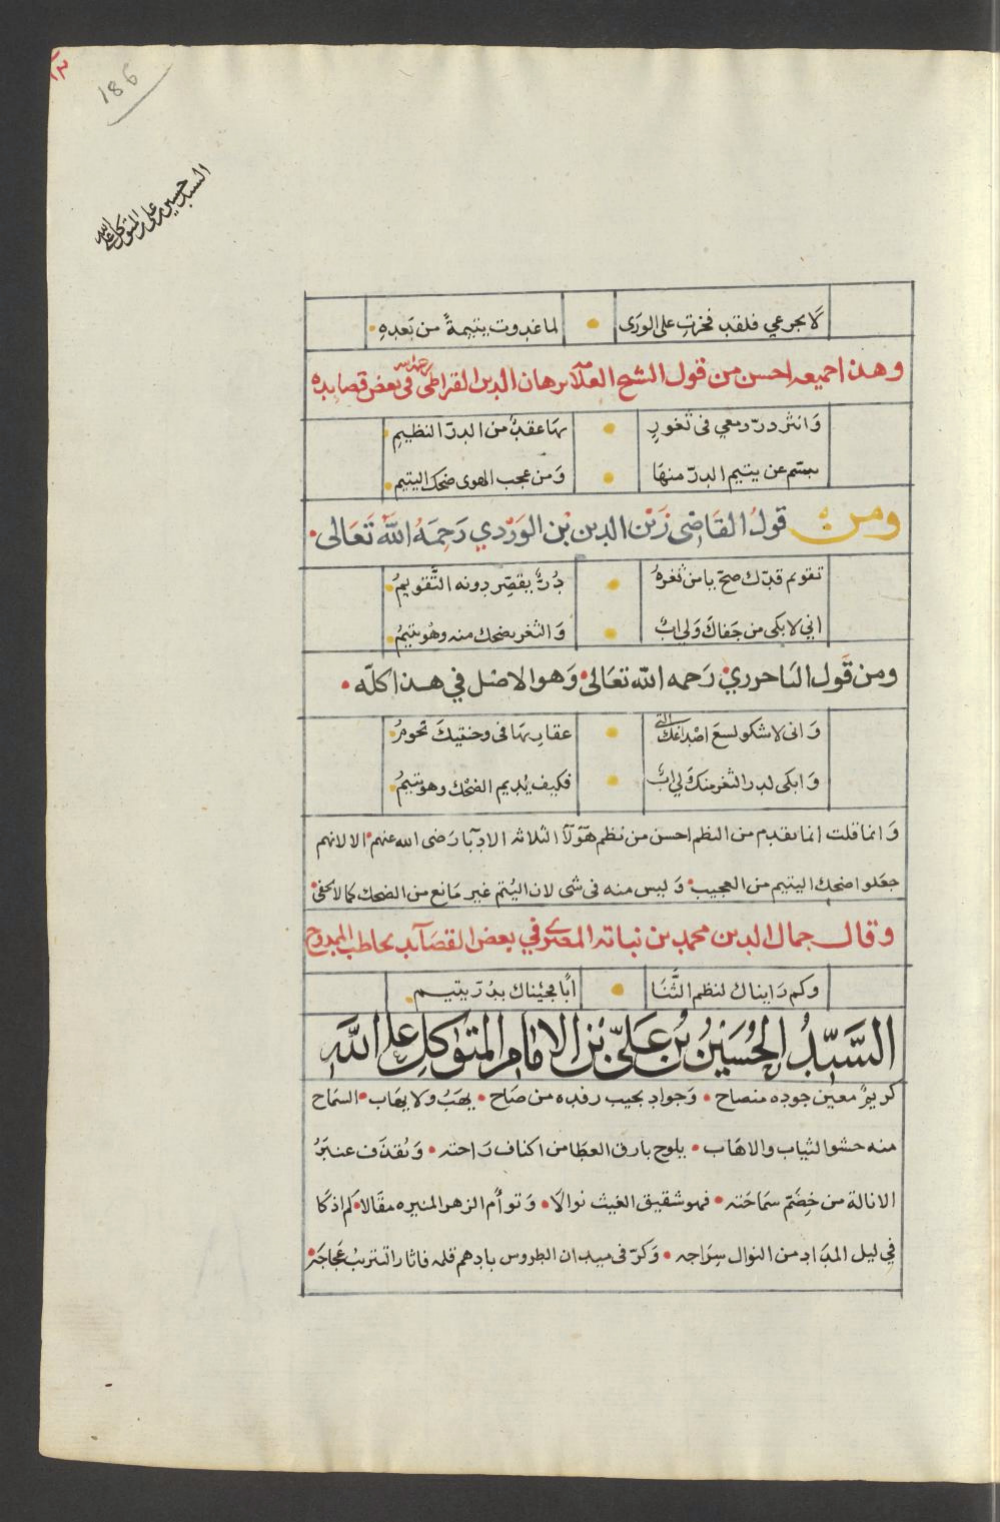 ١٢
186
السيد حسين بن علي المتوكل على الله
لا تجزعي فلقد فخرت على الورى • لما غدوت يتيمةً من بعده •
وهذا جميعه احسن من قول الشيخ العلامه برهان الدين القيراطي رحمه الله في بعض قصايده
وَانثر درّ دمعي في ثغورٍ • بها عقدٌ من الدرّ النظيمِ •
تبسّم عن يتيم الدرّ منها • وَمن عجب الهوى ضحك اليتيم •
ومن قولُ القَاضي زَيْن الدين بْن الوَرْدي رَحِمَهُ اللّه تَعَالى •
تقويم قدّك صحّ يا من ثغرهُ • دُرٌّ يقصّر دونه التَّقويمُ •
اني لابكي من جَفاكَ وَلي ابٌ • وَالثغر يضحك منه وهُو يتيمُ •
ومن قَول الباخرزي رَحمه اللّه تعَالى • وَهو الاصل في هذا كلّه •
وَاني لاشكو لسعَ اصْداغك التي • عقاربها في وجنتيكَ تحومُ •
وَابكي لدر الثغر منك وَلي ابٌ • فكيف يُديم الضحْك وهو يتيمُ •
وَانما قلت انما تقدم من النظم احسن من نظم هَؤلاَ الثلاثه الادبَآ رَضى الله عنهم • الا لانهم
جعَلوا ضحك اليتيم من العجيب • وَليس منه في شي لان اليُتم غير مَانع من الضحك كما لا يخفى •
وقال جمال الدين محمد بن نباته المصري في بعض القصَآيد يخاطب الممدوح
وكم رَايناك لنظم الثَّنَا • أبًا فجئناك بدُرّ يتيم •
السَّيِّدُ الحُسَيْنُ بْنُ عَلِيّ بْن الامَام المتوَكلِ على اللّه
كريمٌ معين جوده منصاح • وَجواد يجيب رفده من صَاح • يهَبُ ولا يهَاب • السمَاح
منه حشو الثياب والاهَاب • يلوح بارق العطَا من اكناف رَاحته • وَيُقذَف عنبَرُ
الانالة من خِضَمّ سمَاحَته • فهو شقيق الغيث نوالاً • وَتوأم الزهر المنيره مقَالا • كم اذكَا
في ليل المدَاد من النوال سِرَاجه • وَكرّ في ميدان الطروس بادهم قلمه فاثار التتريبُ عَجَاجَه •